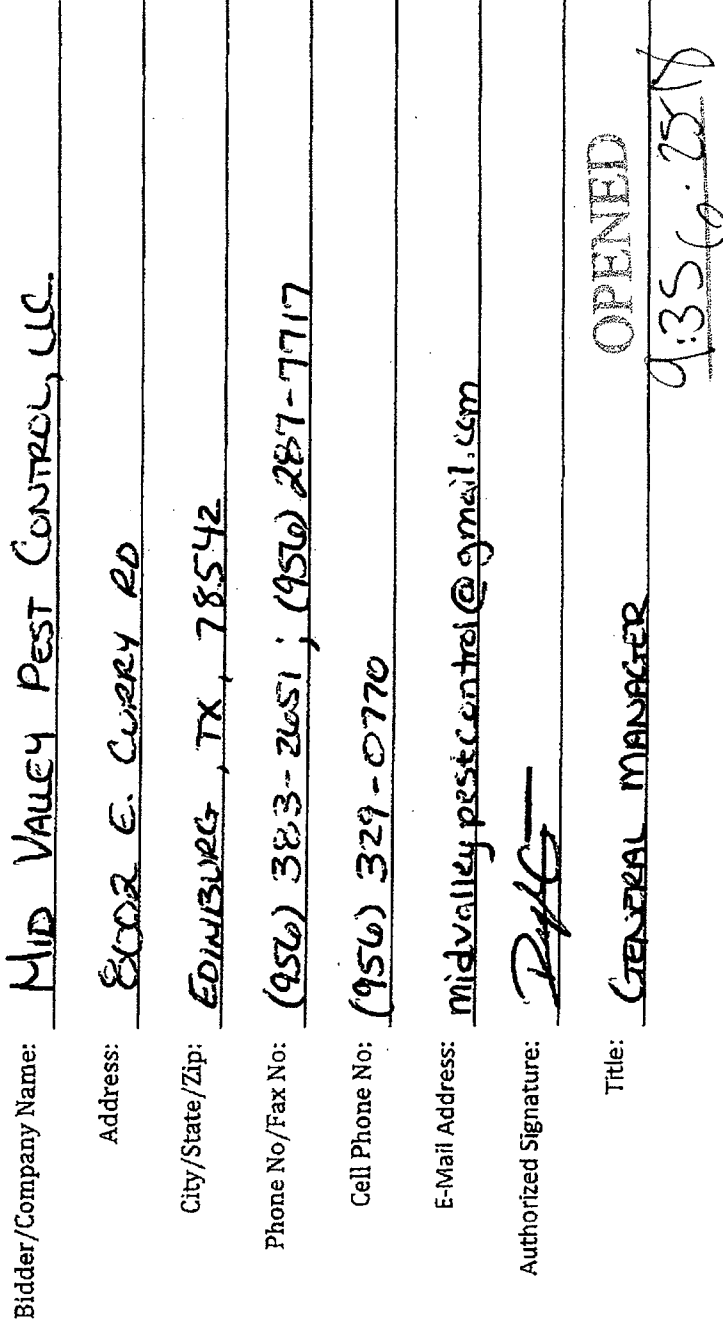 Bidder/Company Name: MID VALLEY PEST CONTROL, LLC.
Address: E. CURRY RD
City/State/Zip: EDINBURG, TX, 78542
Phone No/Fax No: (956) 383-2651 ; (956) 287-7717
Cell Phone No: (956) 329-0770
E-Mail Address: midvalleypestcontrol@gmail.com
Authorized Signature:
Title: GENERAL MANAGER
OPENED
9:35 6.25